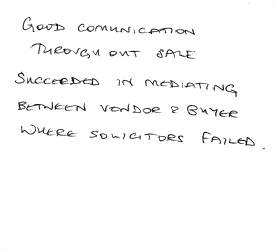 GOOD COMUNICATION
THROUGHOUT SALE
SUCCEEDED IN MEDIATING
BETWEEN VENDOR & BUYER
WHERE SOLICITORS FAILED.